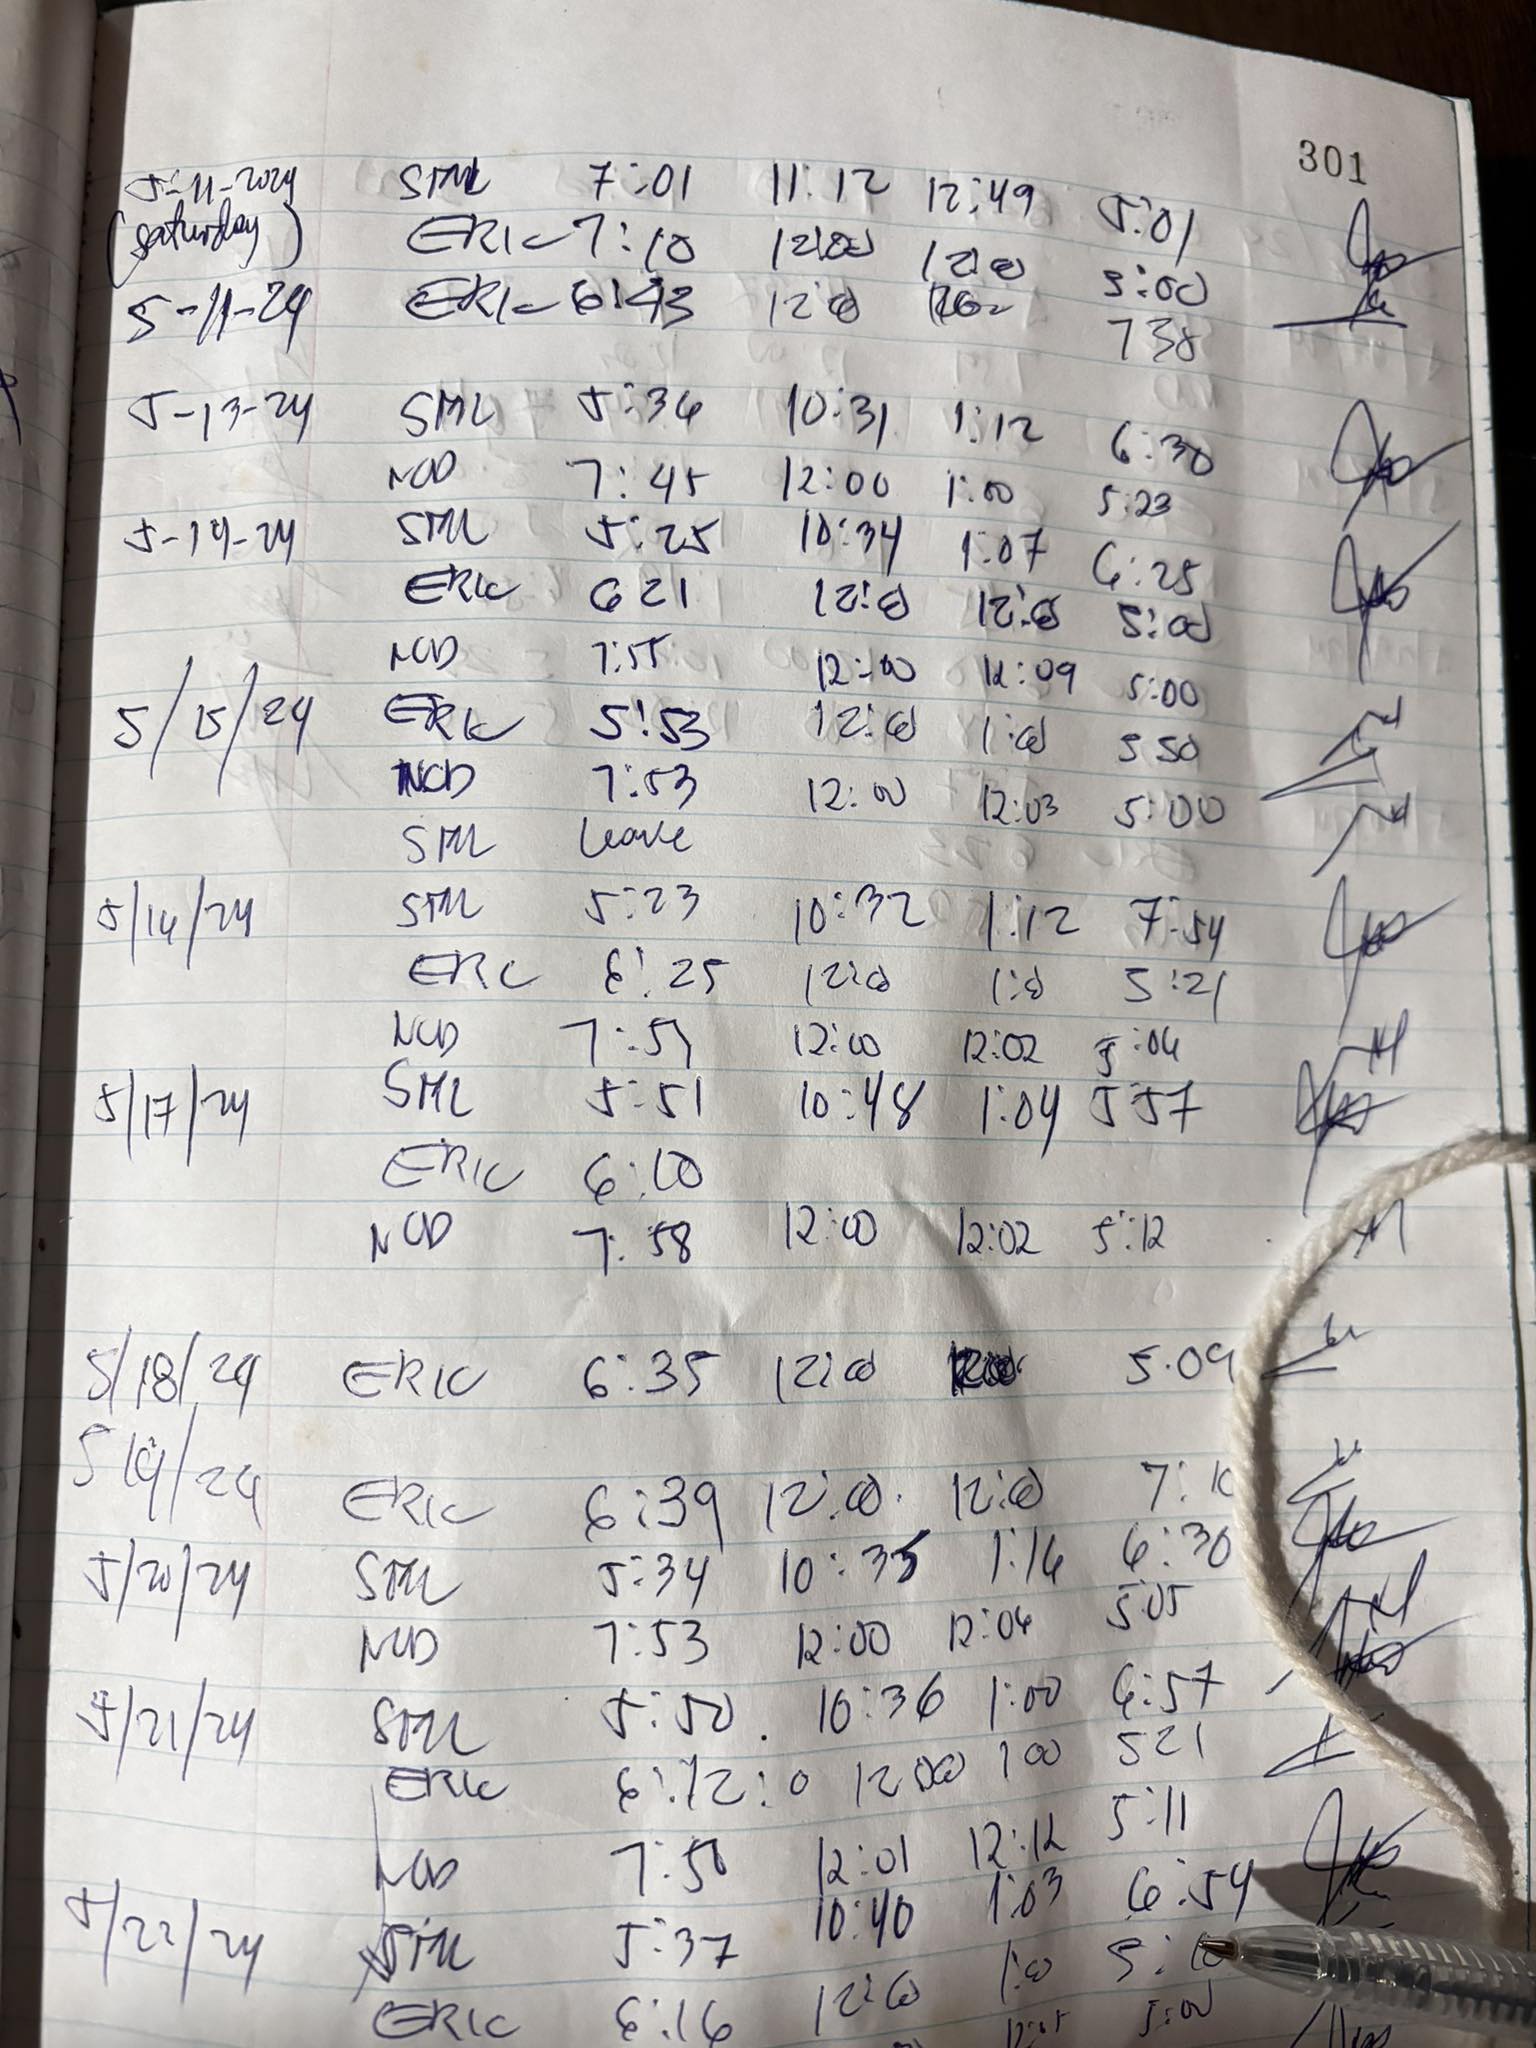 301
5-11-2024 SML 7:01 11:12 12:49 5:01
(Saturday) ERIC 7:10 12:00 12:00 5:00
5-11-24 ERIC 6:43 12:00 738
5-13-24 SML 5:36 10:31 1:12 6:30
NCD 7:45 12:00 1:00 5:23
5-14-24 SML 5:25 10:34 1:07 6:25
ERIC 621 12:00 12:00 5:00
NCD 7:55 12:00 12:09 5:00
5/15/24 ERIC 5:53 12:00 1:00 550
NCD 7:53 12:00 12:03 5:00
SML leave
5/16/24 SML 5:23 10:32 1:12 7:54
ERIC 6:25 12:00 1:00 5:21
NCD 12:00 12:02 5:06
5/17/24 SML 5:51 10:48 1:04 5:57
ERIC 6:10
NCD 7:58 12:00 12:02 5:12
5/18/24 ERIC 6:35 12:00 5.09
5/19/24 ERIC 6:39 12:00 12:00
5/20/24 SML 5:34 10:35 1:16 6:30
NCD 7:53 12:00 12:06 5:05
5/21/24 SML 5:50 10:36 1:00 6:57
ERIC 12:00 1 00 521
NCD 7:50 12:01 12:12 5:11
5/22/24 SML 5:37 10:40 1:03 6:54
ERIC 6:16 12:00 1:00
5:00